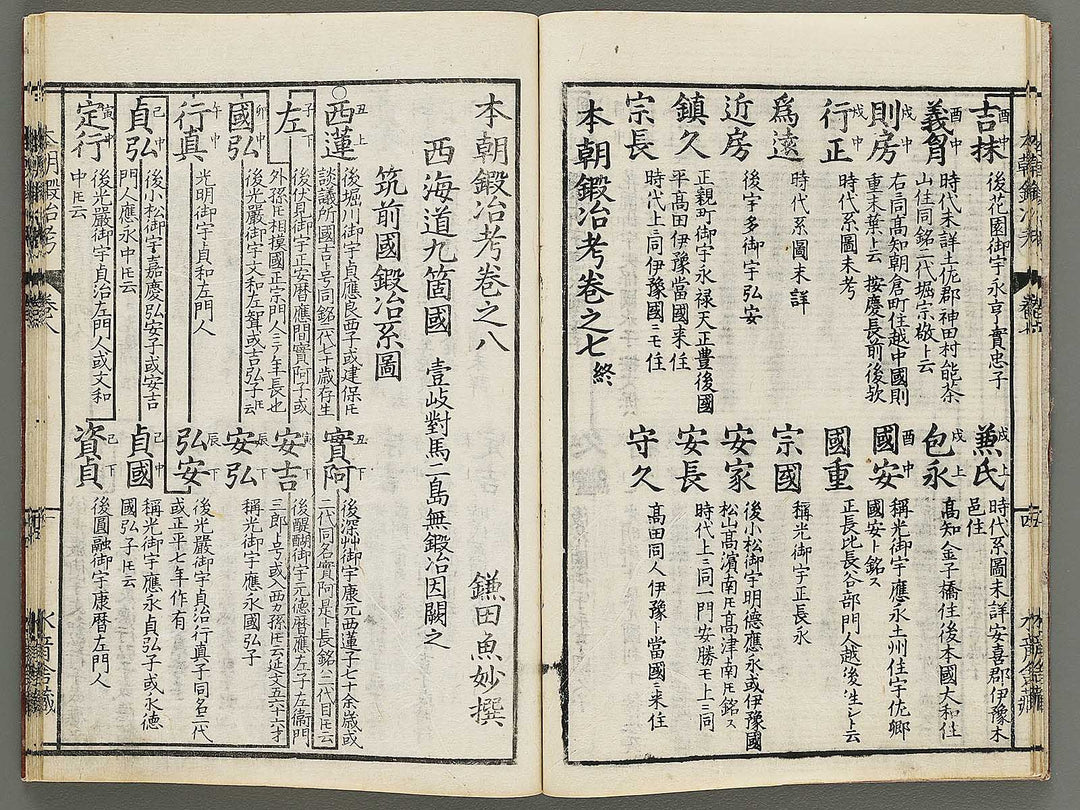 吉抹 酉中 後花園御宇永亨實忠子
義負 酉中 時代未詳土佐郡神田村能茶
山住同銘二代堀宗敬ト云
則房 戌中 右ニ同高知朝倉町住越中國則
重末葉ト云 按慶長前後欤
行正 戌中 時代系圖未考
爲遠 時代系圖未詳
近房 後宇多御宇弘安
鎮久 正親町御宇永禄天正豊後國
平高田伊豫當國来住
宗長 時代上ニ同伊豫國ニモ住
兼氏 戌上 時代系圖未詳安喜郡伊豫木
邑住
包永 戌上 高知金子橋住後本國大和住
國安 酉中 稱光御宇應永土州住宇佐郷
國安ト銘ス
國重 正長比長谷部門人越後ニ生レシト云
宗國 稱光御宇正長永
安家 後小松御宇明德應永或伊豫國
松山高濱南圧高津南圧銘ス
安長 時代上ニ同一門安勝モ上ニ同
守久 高田同人伊豫ト當國ニ来住
本朝鍛冶考卷之七終
本朝鍛冶考卷之八
鎌田魚妙撰
西海道九箇國 壹岐對馬二島無鍛冶因闕之
筑前國鍛冶系圖
西蓮 丑上 後堀川御宇貞應良西子或建保圧
談議所國吉ト号同銘二代七十歳存生
左 子下 後伏見御宇正安暦應間實阿子或
外孫圧相摸國正宗門人三ケ年長也
國弘 卯中 後光嚴御宇文和左聟或吉弘子圧
行真 午中 光明御宇貞和左門人
貞弘 己中 後小松御宇嘉慶弘安子或安吉
門人應永中圧云
定行 寅中 後光嚴御宇貞治左門人或文和
中圧云
實阿 丑下 後深艸御宇康元西蓮子七十余歳或
二代同名實阿是ト長銘ハ二代目圧云
安吉 寅下 後醍醐御宇元德暦應左子左衞門
三郎ト号或入西カ孫圧云延文五六十六才
安弘 辰下 稱光御宇應永國弘子
弘安 辰下 後光嚴御宇貞治行真子同名二代
或正平七年作有
貞國 己下 稱光御宇應永貞弘子或永德
國弘子圧云
資貞 己下 後圓融御宇康暦左門人
本朝鍛冶考 卷八